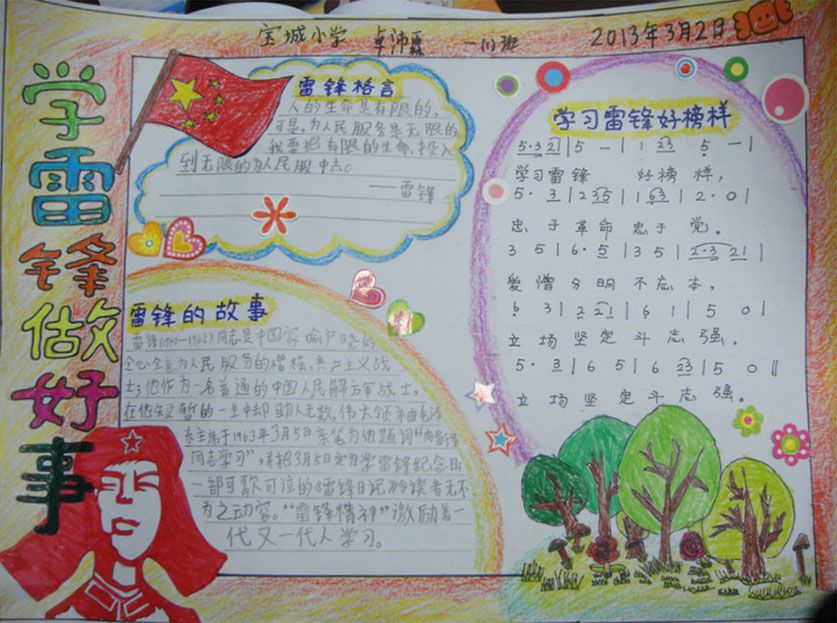 宝城小学 卓沛霖 一(1)班 2013年3月2日
学雷锋做好事
雷锋格言
人的生命是有限的,
可是,为人民服务是无限的
我要把有限的生命,投入
到无限的为人民服中去。
——雷锋
雷锋的故事
雷锋(1940—1962)同志是中国家喻户晓的
全心全意为人民服务的楷模,共产主义战
士;他作为一名普通的中国人民解方军战士,
在他短暂的一生中却助人无数,伟大领袖毛泽
东主席于1963年3月5日亲笔为他题词"向雷锋
同志学习",并把3月5日定为学雷锋纪念日
一部可歌可泣的《雷锋日记》令读者无不
为之动容。"雷锋精神"激励着一
代又一代人学习。
学习雷锋好榜样
5·32|5 —|1 23 5 —|
学习雷锋 好榜样,
5· 3|235|163|2·0|
忠于革命忠于党。
3 5|6·5|35|2·3 21|
爱憎分明不忘本,
6 3|2 21|6 1|5 0|
立场坚定斗志强。
5· 3|6 5|6 23|5 0‖
立场坚定斗志强。